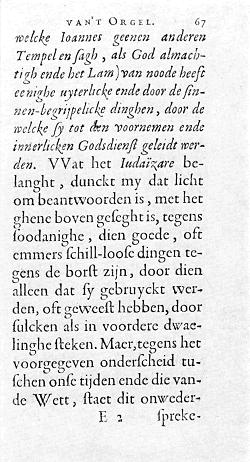 VAN'T ORGEL. 67
welcke Ioannes geenen anderen
Tempel en sagh, als God almach-
tigh ende het Lam) van noode heeft
eenighe uyterlicke ende door de sin-
nen-begrijpelicke dinghen, door de
welcke sy tot den voornemen ende
innerlicken Godsdienst geleidt wer-
den. VVat het Iudaïzare be-
langht, dunckt my dat licht
om beantwoorden is, met het
ghene boven geseght is, tegens
soodanighe, dien goede, oft
emmers schill-loose dingen te-
gens de borst zijn, door dien
alleen dat sy gebruyckt wer-
den, oft geweest hebben, door
sulcken als in voordere dwae-
linghe steken. Maer, tegens het
voorgegeven onderscheid tu-
schen onse tijden ende die van-
de Wett, staet dit onweder-
E 2 spreke-